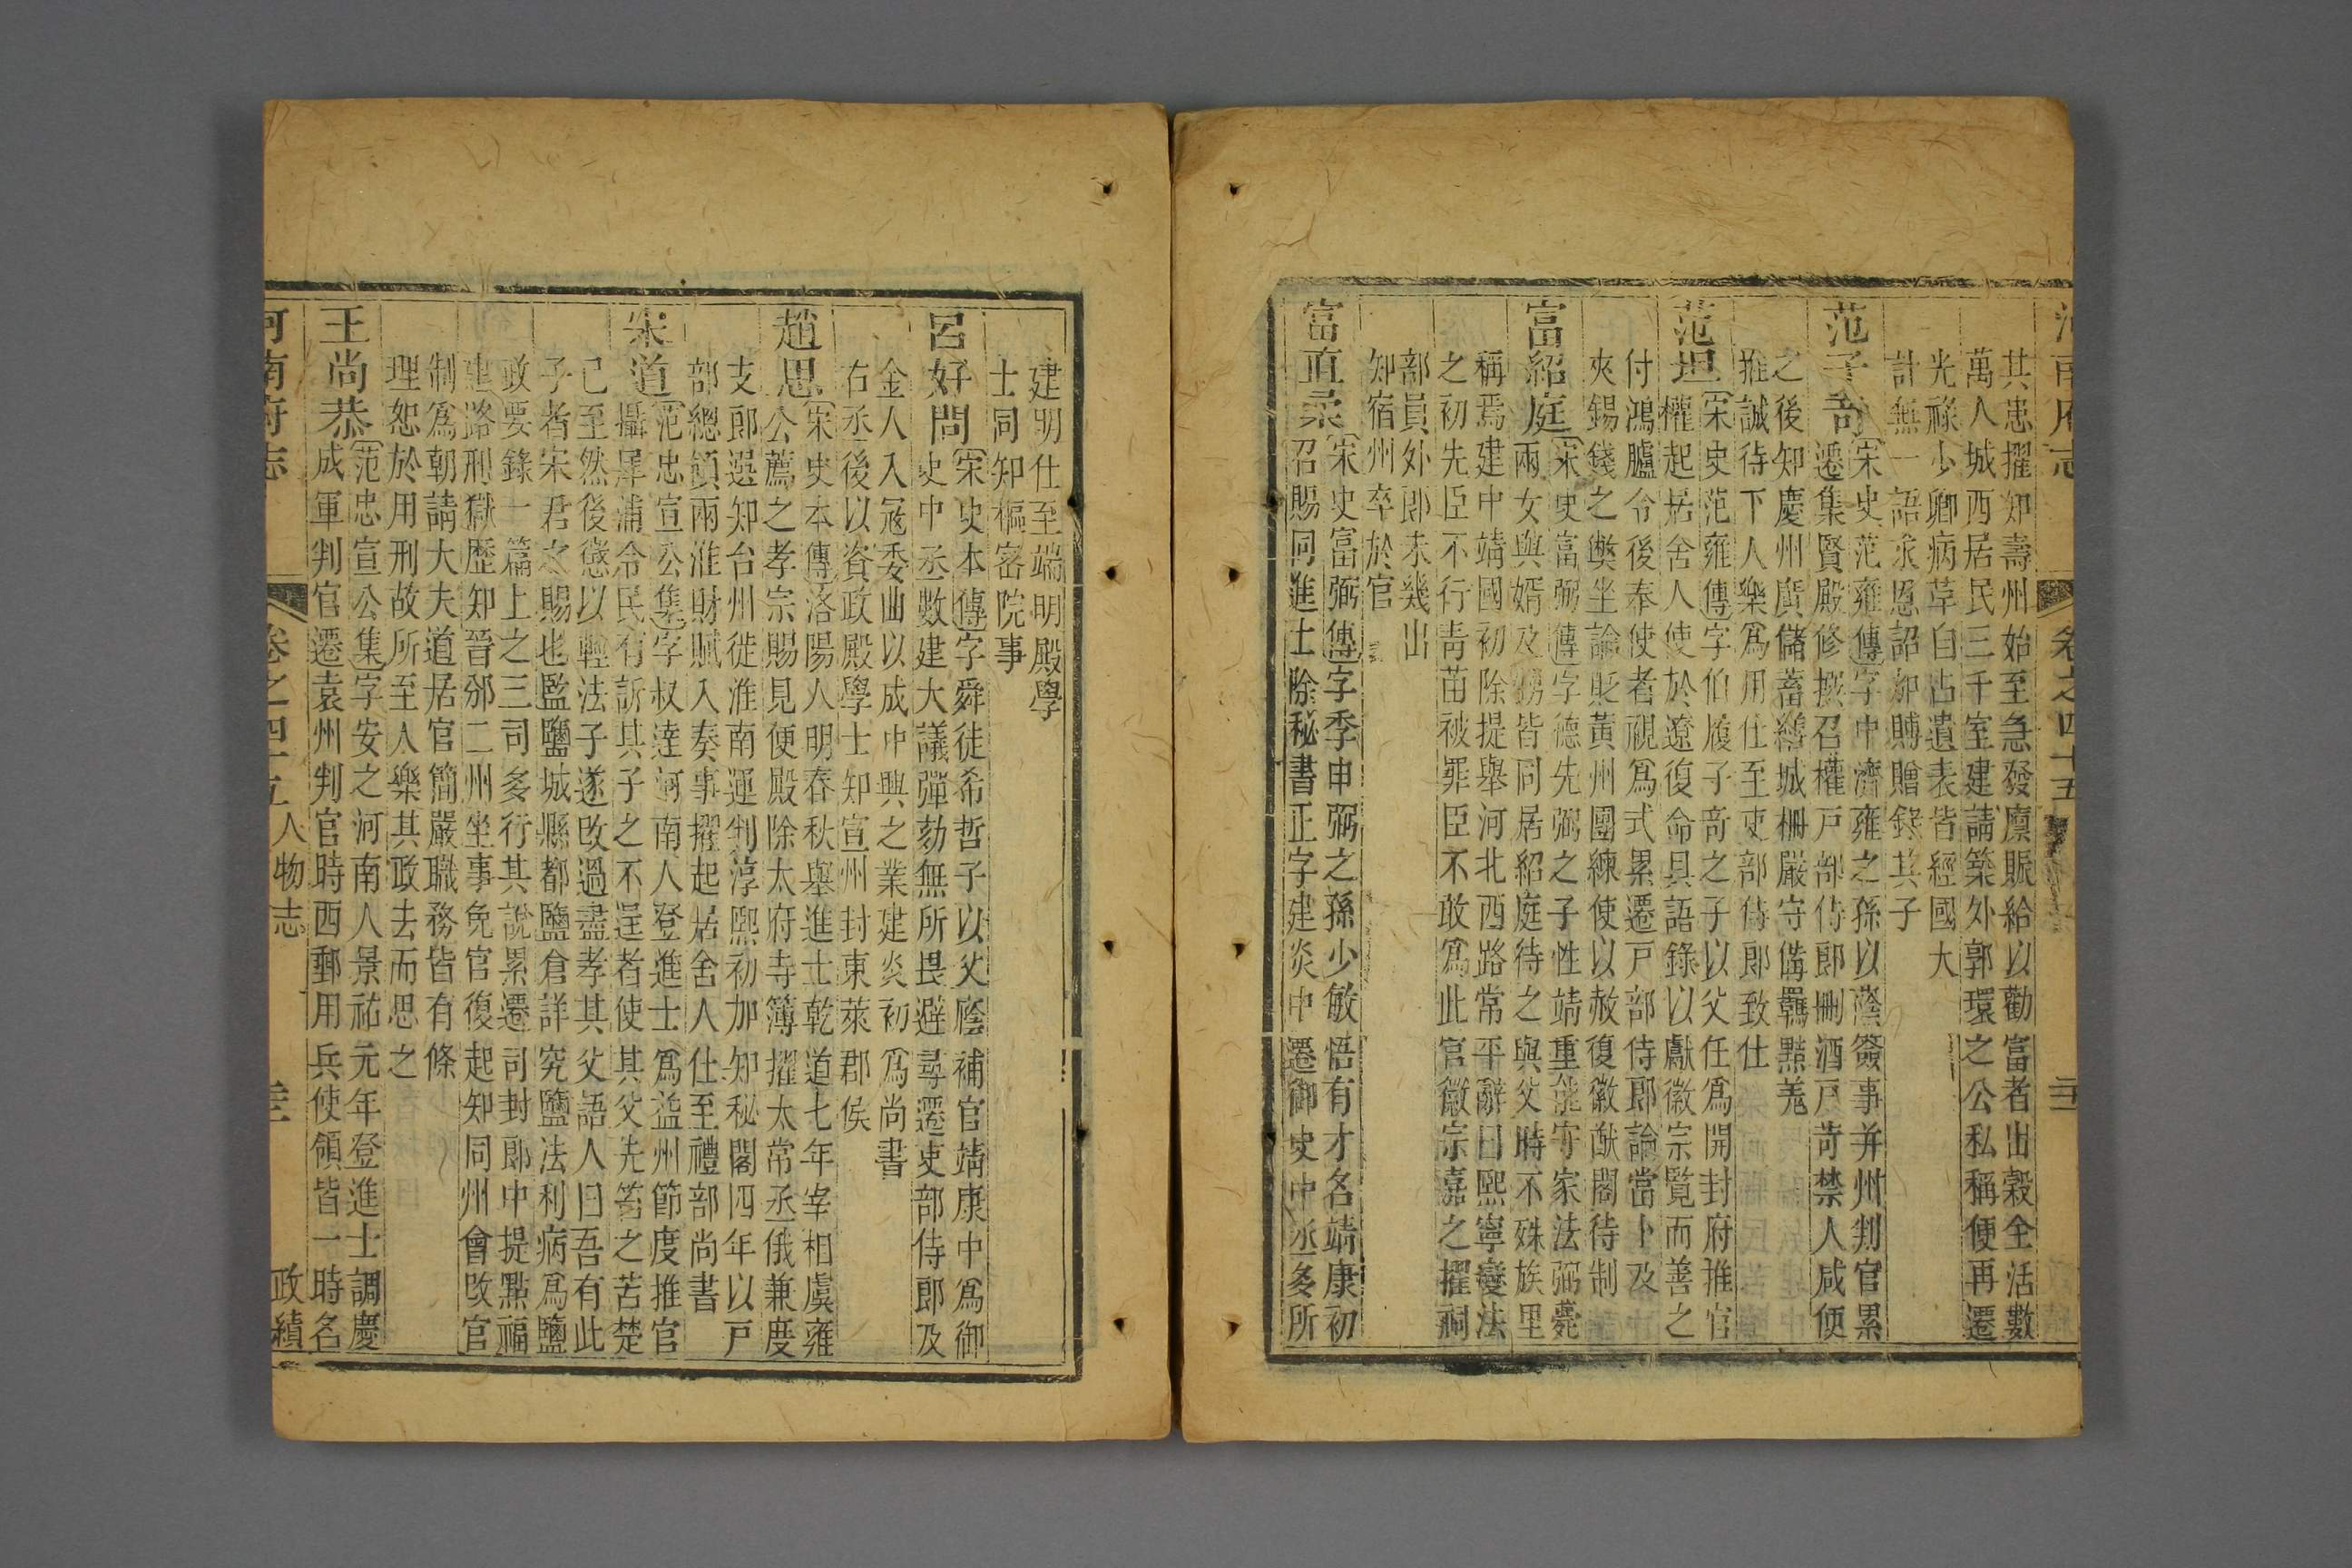 河南府志 卷之四十五
其忠擢知壽州始至急發廩賑給以勸富者出穀全活數
萬人城西居民三千室建請築外郭環之公私稱便再遷
光祿少卿病草自占遺表皆經國大
計無一語求恩詔加賻贈錄其子
范子奇
宋史范雍傳字中濟雍之孫以蔭簽事并州判官累
遷集賢殿修撰召權戸部侍郎刪酒戸苛禁人咸便
之後知慶州廣儲蓄繕城柵嚴守備羈黠羌
推誠待下人樂爲用仕至吏部侍郎致仕
范坦
宋史范雍傳字伯履子奇之子以父任爲開封府推官
權起居舍人使於遼復命具語錄以獻徽宗覽而善之
付鴻臚令後奉使者視爲式累遷戸部侍郎論當十及
夾錫錢之獘坐論貶黃州團練使以赦復徽猷閣待制
富紹庭
宋史富弼傳字德先弼之子性靖重能守家法弼薨
兩女與婿及甥皆同居紹庭待之與父時不殊族里
稱焉建中靖國初除提舉河北西路常平辭曰熙寧變法
之初先臣不行青苗被罪臣不敢爲此官徽宗嘉之擢祠
部員外郎未幾出
知宿州卒於官
富直柔
宋史富弼傳字季申弼之孫少敏悟有才名靖康初
召賜同進士除秘書正字建炎中遷御史中丞多所
建明仕至端明殿學
士同知樞密院事
呂好問
宋史本傳字舜徒希哲子以父廕補官靖康中爲御
史中丞數建大議彈劾無所畏避尋遷吏部侍郎及
金人入冦委曲以成中興之業建炎初爲尚書
右丞後以資政殿學士知宣州封東萊郡侯
趙思
宋史本傳洛陽人明春秋舉進士乾道七年宰相虞雍
公薦之孝宗賜見便殿除太府寺簿擢太常丞俄兼度
支郎選知台州徙淮南運判淳熙初加知秘閣四年以戸
部總領兩淮財賦入奏事擢起居舍人仕至禮部尚書
宋道
范忠宣公集字叔達河南人登進士爲益州節度推官
攝犀浦令民有訴其子之不逞者使其父先笞之苦楚
已至然後懲以輕法子遂改過盡孝其父語人曰吾有此
子者宋君之賜也監鹽城縣都鹽倉詳究鹽法利病爲鹽
政要錄一篇上之三司多行其說累遷司封郎中提點福
建路刑獄歷知晉邠二州坐事免官復起知同州會改官
制爲朝請大夫道居官簡嚴職務皆有條
理恕於用刑故所至人樂其政去而思之
王尚恭
范忠宣公集字安之河南人景祐元年登進士調慶
成軍判官遷袁州判官時西郵用兵使領皆一時名
河南府志 卷之四十五 人物志 政績